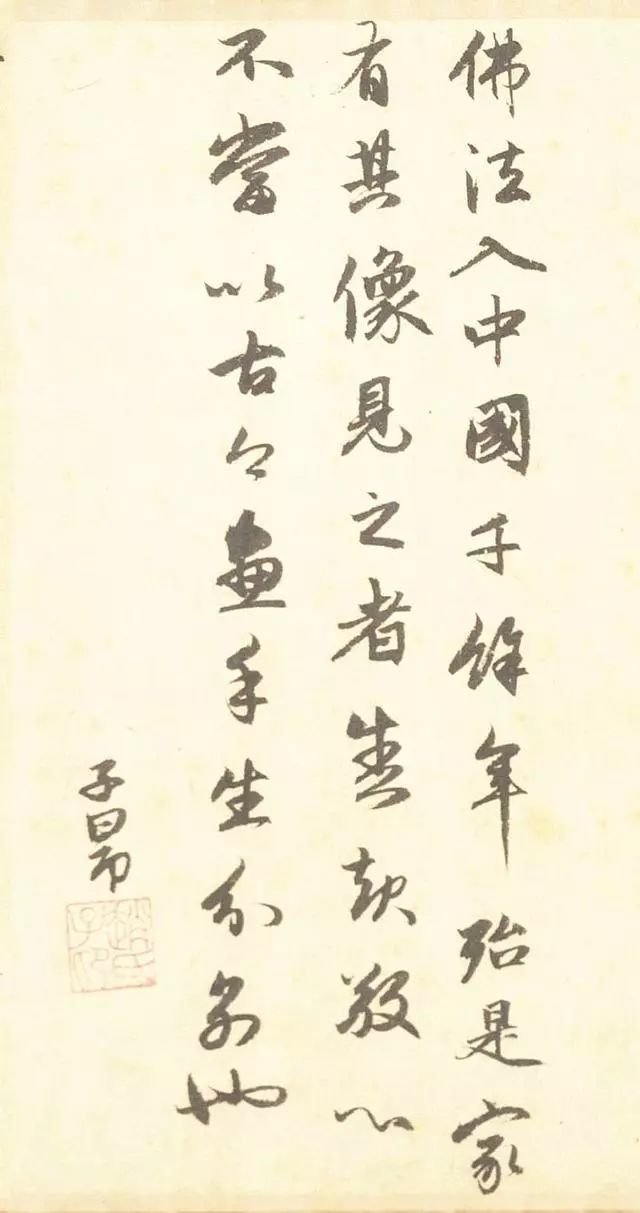 佛法入中國千餘年殆是家
有其像見之者盡起敬心
不當以古今畫手生分別也
子昂
趙氏子昂